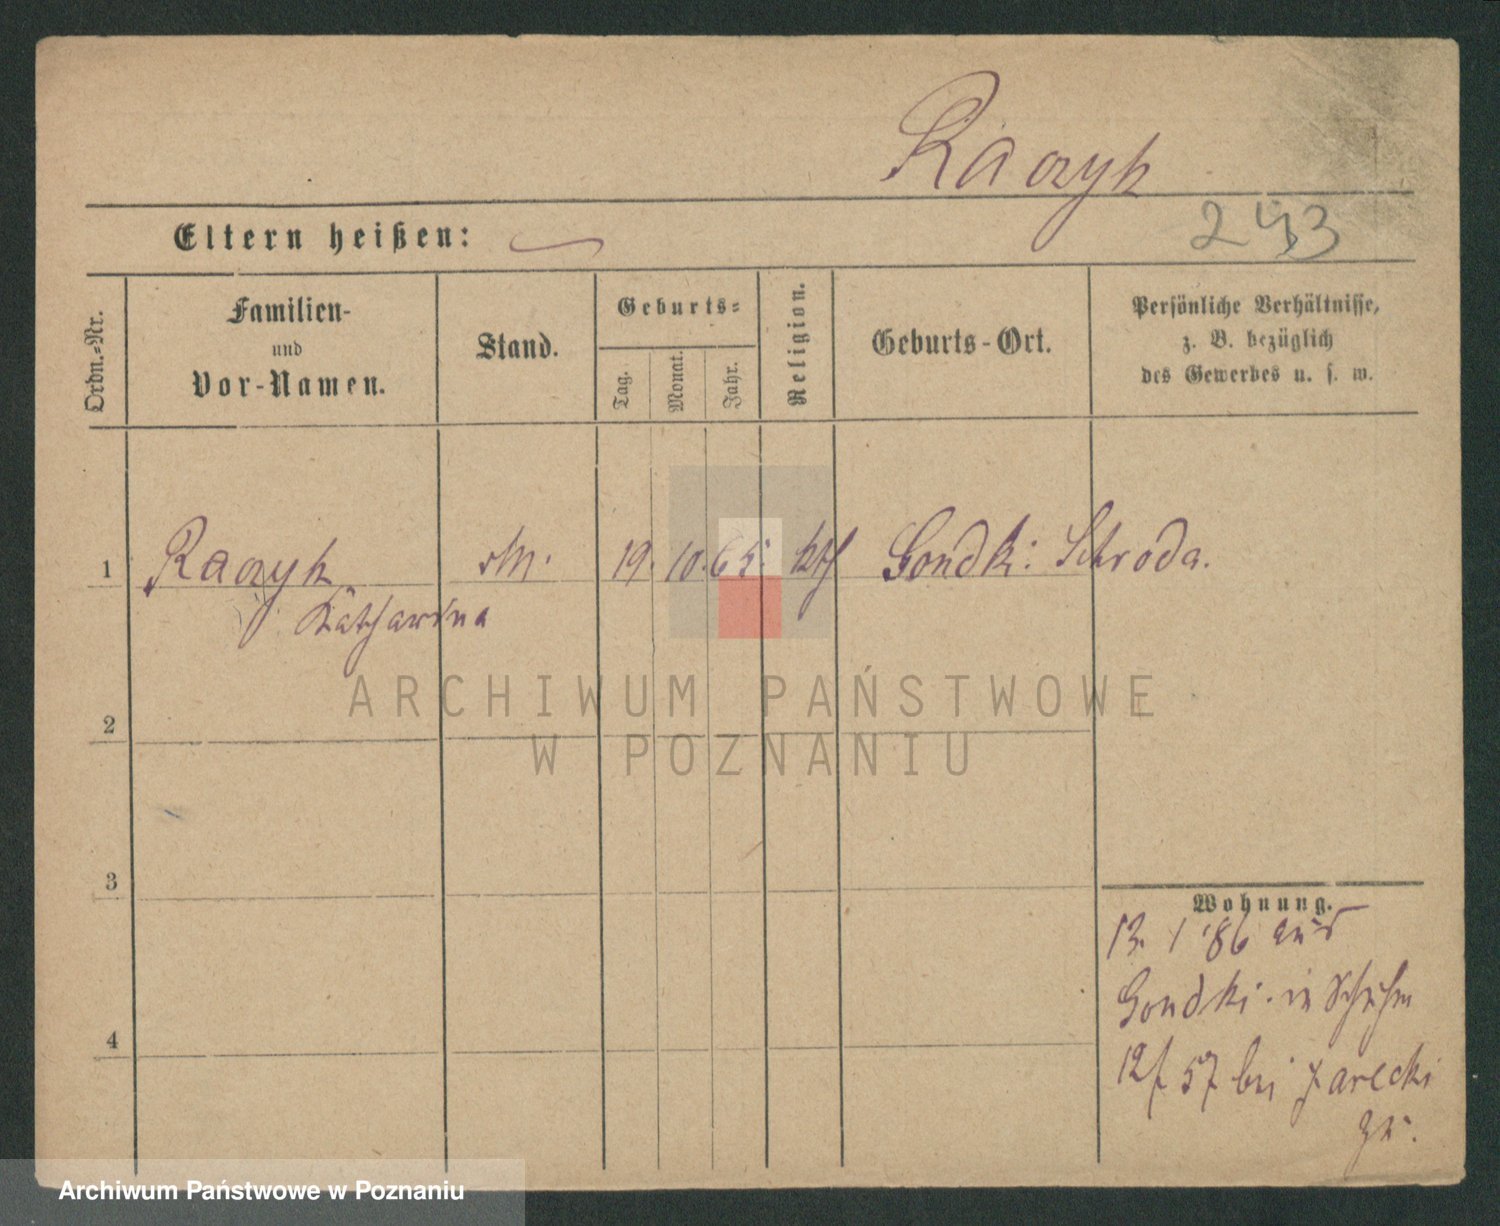 Raczyk
Eltern heißen:
243
Ordn.-Nr.
Familien-
und
Vor-Namen.
Stand.
Geburts-
Tag.
Monat.
Jahr.
Religion.
Geburts-Ort.
Persönliche Verhältnisse,
z. B. bezüglich
des Gewerbes u. s. w.
1 Raczyk M. 19. 10. 65. kth Gondki: Schroda.
Katharina
ARCHIWUM PAŃSTWOWE
W POZNANIU
2
3
4
Wohnung.
13. 1 86 aus
Gondki. in
12/ 57 bei Jarecki
zu.
Archiwum Państwowe w Poznaniu